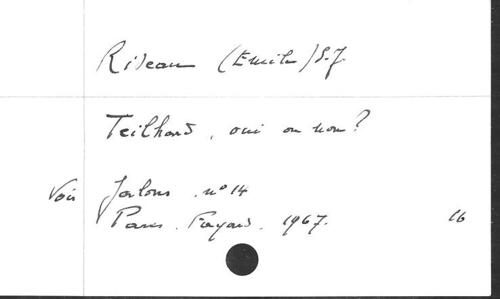 Rideau (Emile) S.J.
Teilhard, oui ou non?
Voir Jalons. n° 14
Paris. Fayard. 1967. 16